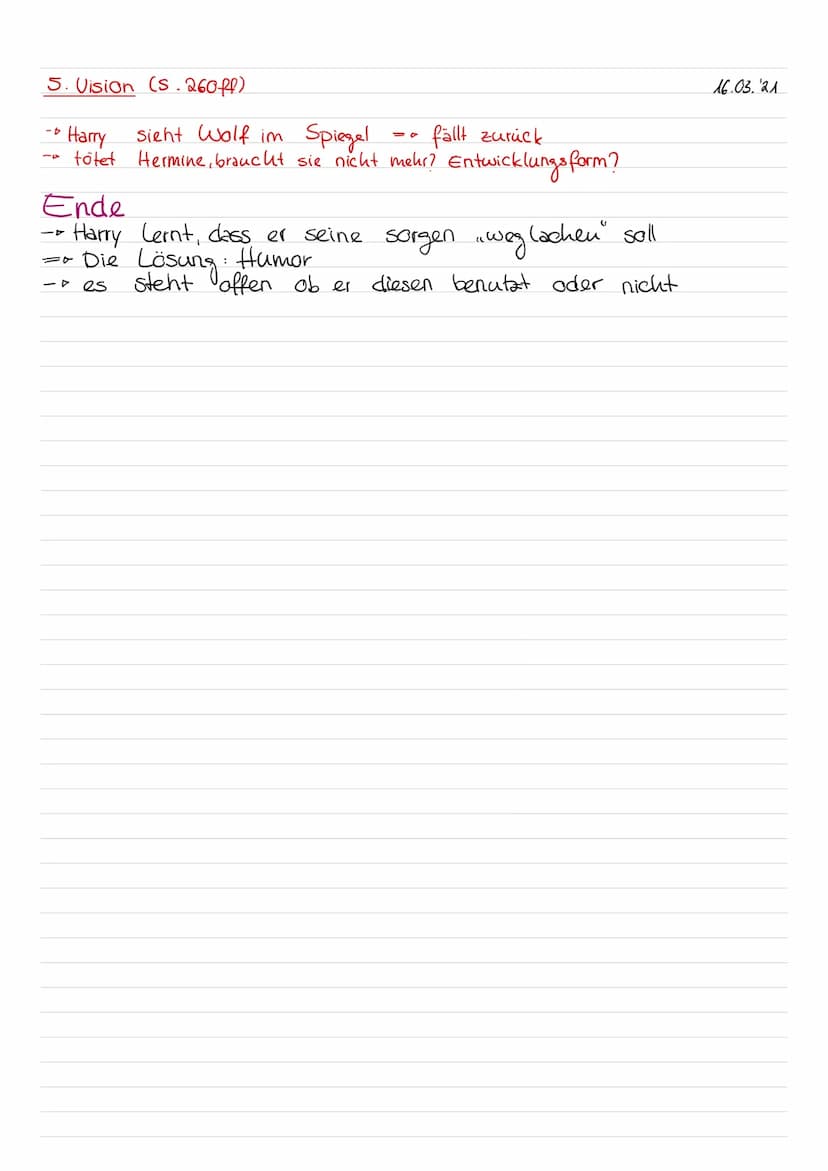 5. Vision (S. 260ff) 16.03.'21
-> Harry sieht Wolf im Spiegel => fällt zurück
-> tötet Hermine, braucht sie nicht mehr? Entwicklungsform?
Ende
-> Harry lernt, dass er seine sorgen „weglachen“ soll
=> Die Lösung: Humor
-> es steht offen ob er diesen benutzt oder nicht